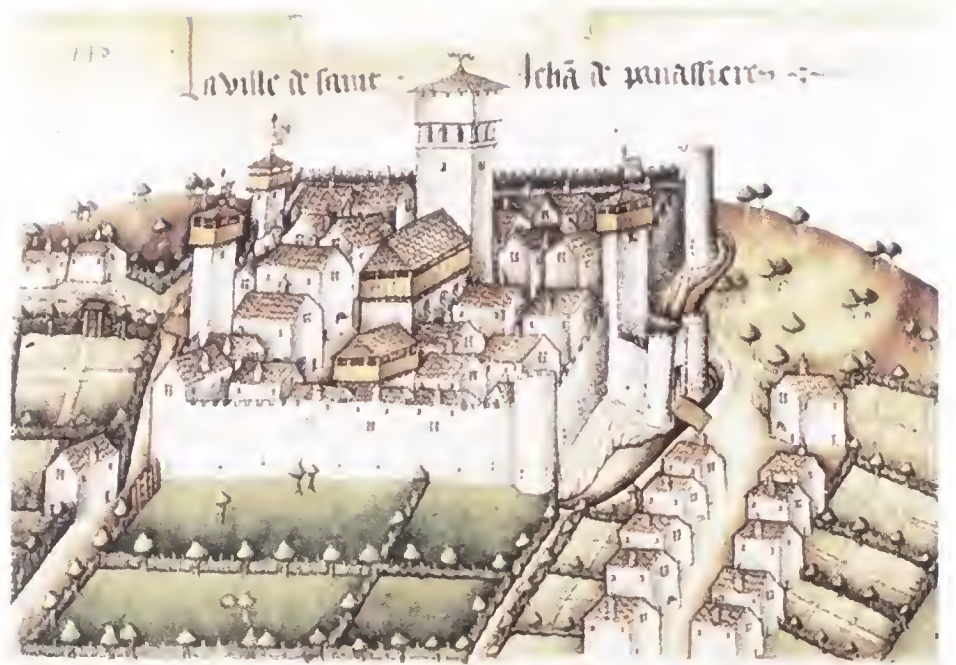 110
La ville de saint Jehā de panassieres